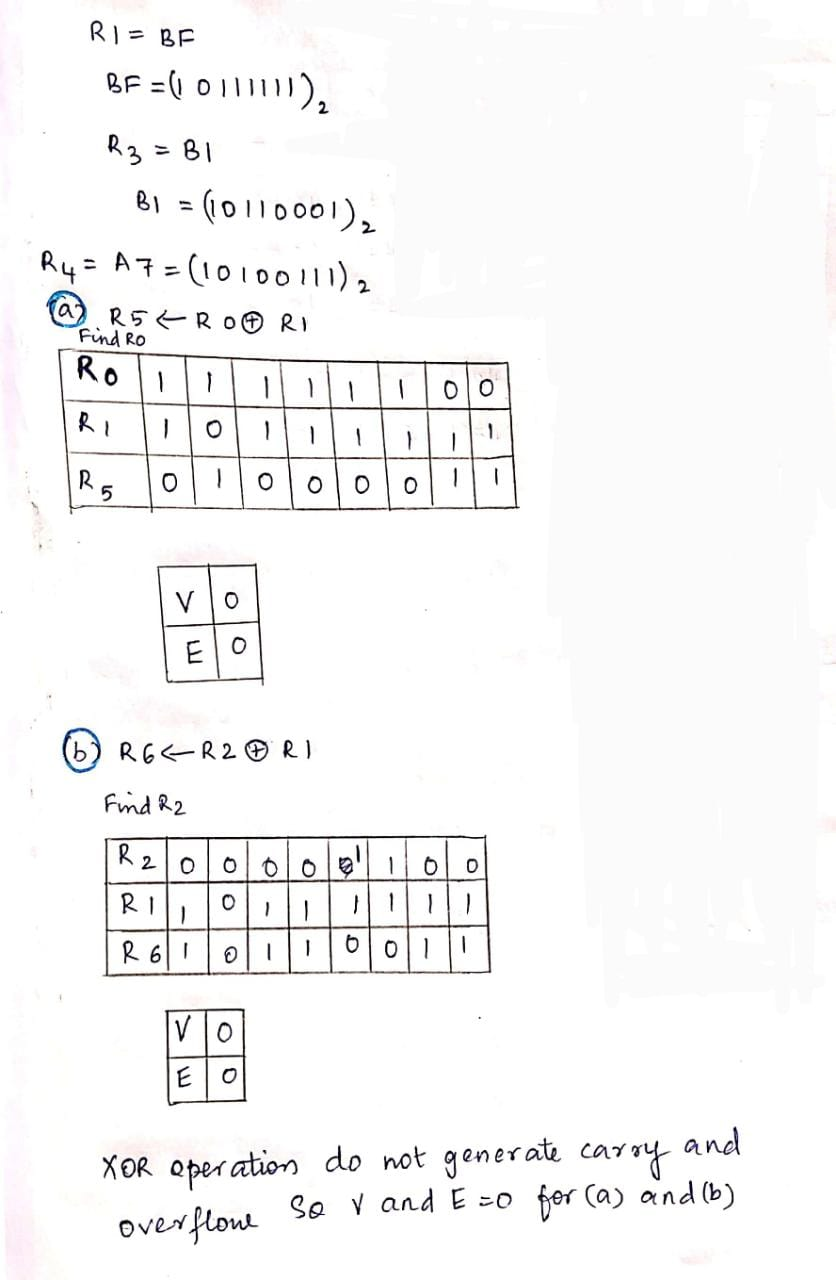 R1 = BF
BF = (10111111)₂
R3 = B1
B1 = (10110001)₂
R4 = A7 = (10100111)₂
(a) R5 ← R0 ⊕ R1
Find R0
R0 1 1 1 1 1 1 0 0
R1 1 0 1 1 1 1 1 1
R5 0 1 0 0 0 0 1 1
V 0
E 0
(b) R6 ← R2 ⊕ R1
Find R2
R2 0 0 0 0 1 1 0 0
R1 1 0 1 1 1 1 1 1
R6 1 0 1 1 0 0 1 1
V 0
E 0
XOR operation do not generate carry and
overflow So V and E = 0 for (a) and (b)